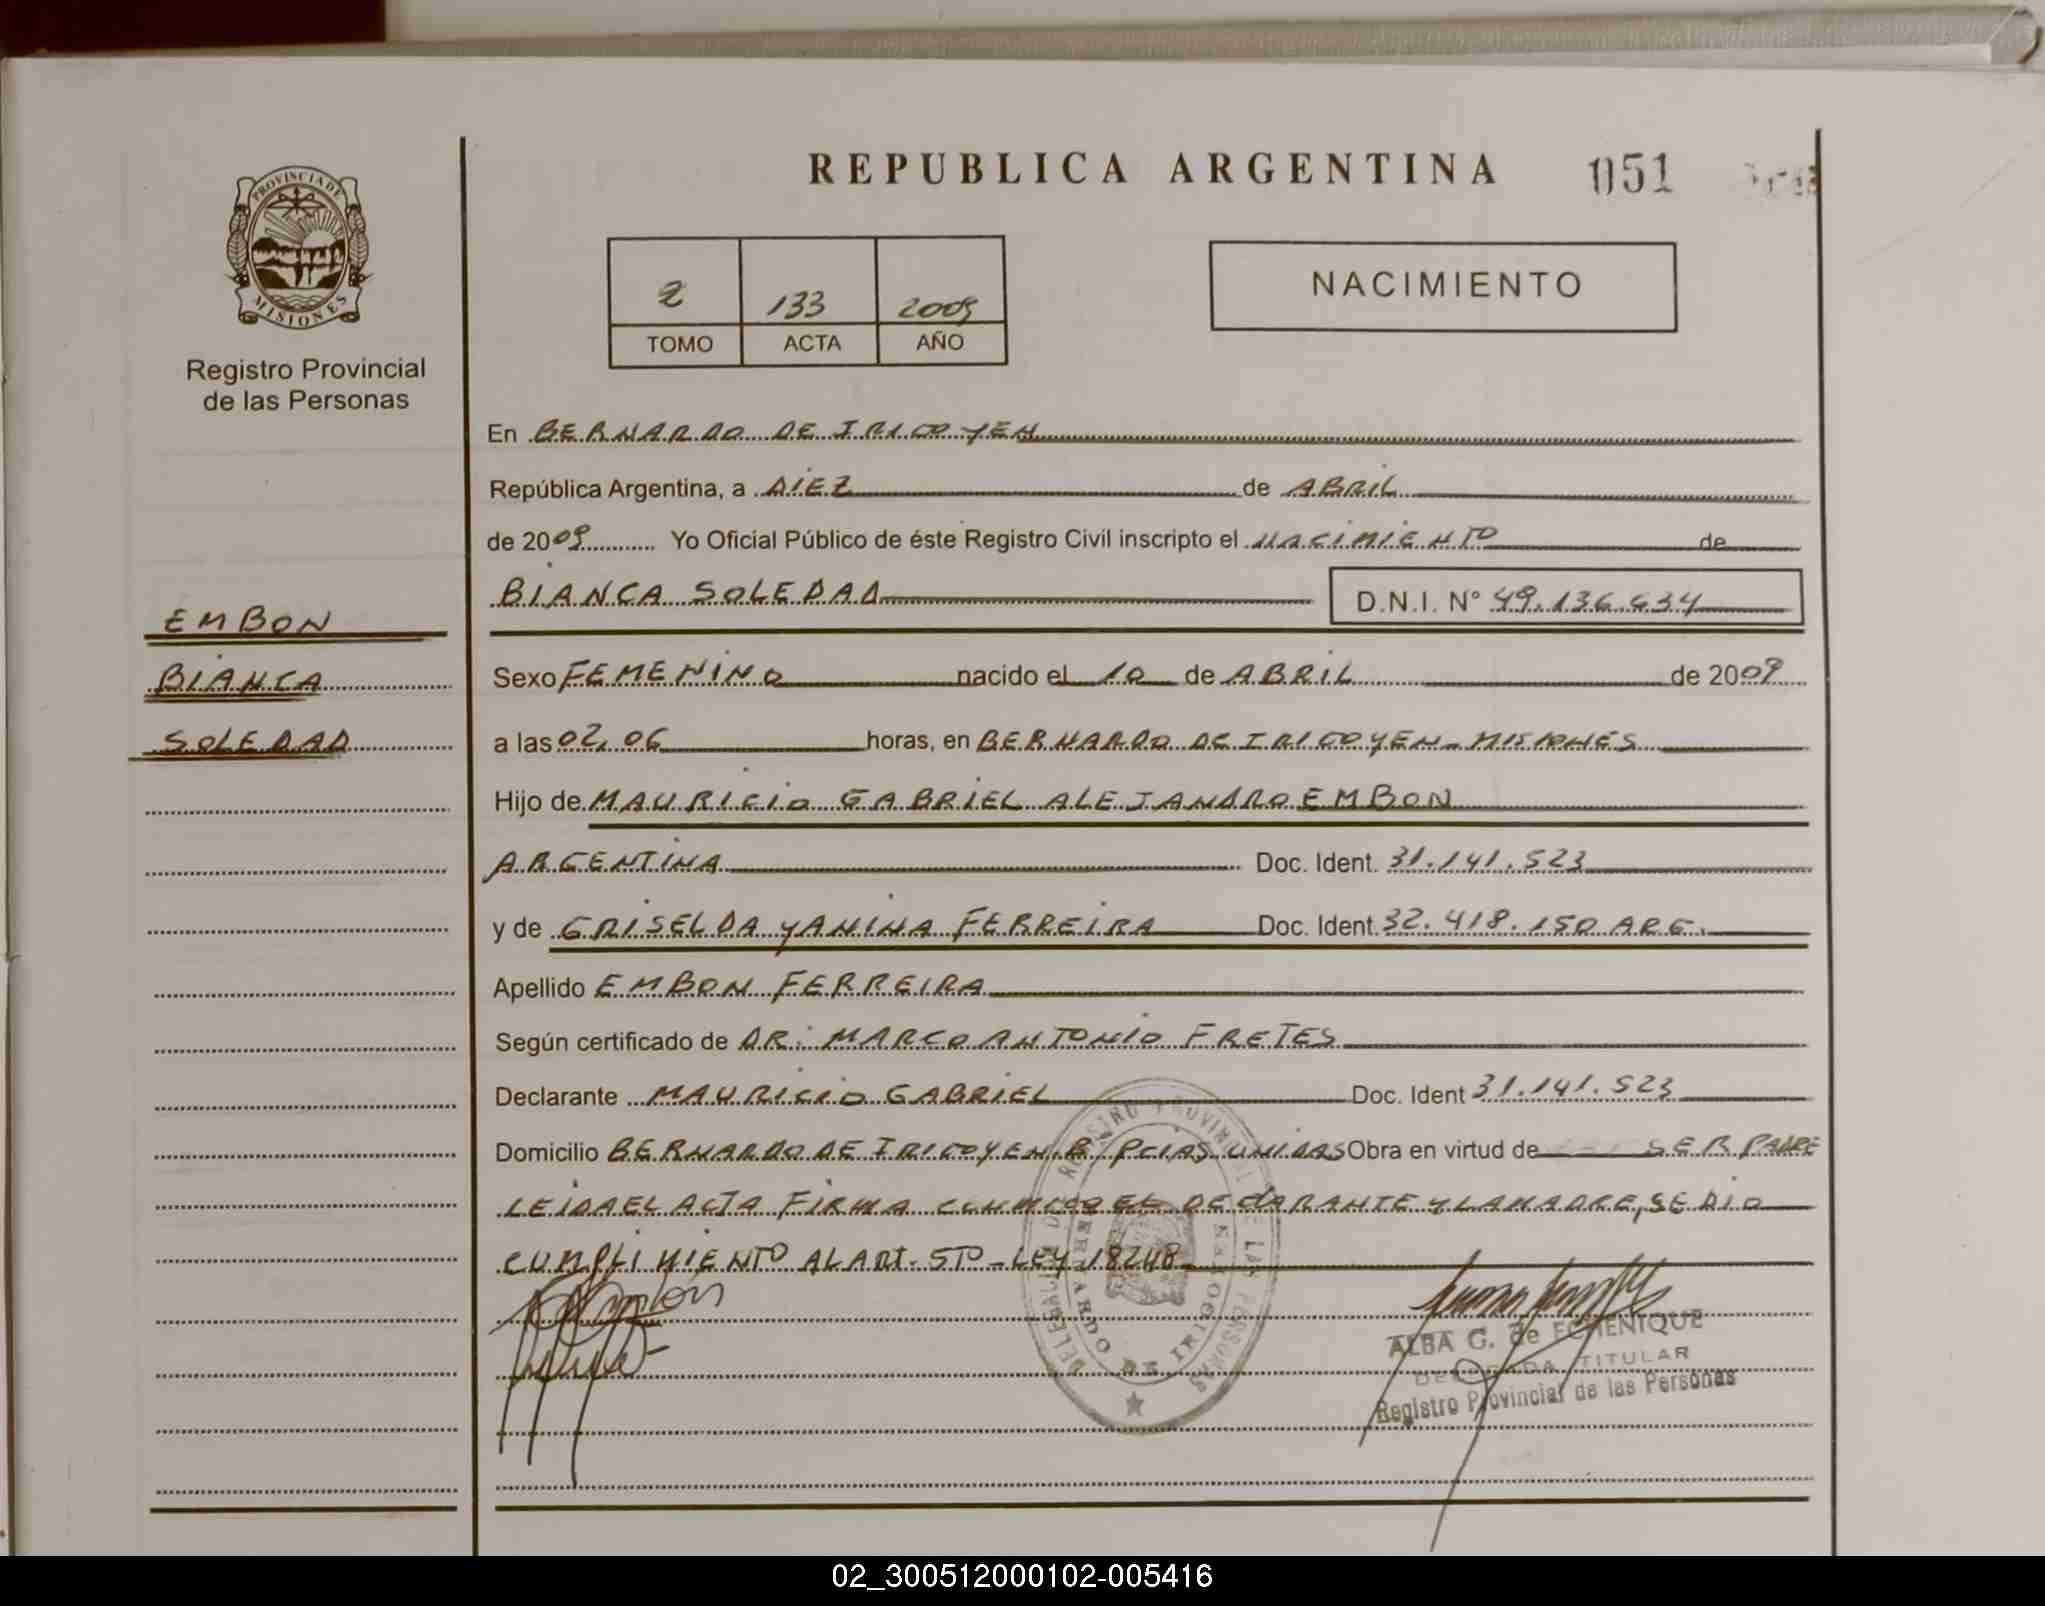 REPUBLICA ARGENTINA 051
PROVINCIA DE
MISIONES
Registro Provincial
de las Personas
2 133 2009
TOMO ACTA AÑO
NACIMIENTO
En BERNARDO DE IRIGOYEN
República Argentina, a DIEZ de ABRIL
de 2009 Yo Oficial Público de éste Registro Civil inscripto el NACIMIENTO de
BIANCA SOLEDAD D.N.I. N° 49.136.634
EMBON
BIANCA
SOLEDAD
Sexo FEMENINO nacido el 10 de ABRIL de 2009
a las 02,06 horas, en BERNARDO DE IRIGOYEN - MISIONES
Hijo de MAURICIO GABRIEL ALEJANDRO EMBON
ARGENTINA Doc. Ident. 31.141.523
y de GRISELDA YANINA FERREIRA Doc. Ident. 32.418.150 ARG.
Apellido EMBON FERREIRA
Según certificado de DR: MARCO ANTONIO FRETES
Declarante MAURICIO GABRIEL Doc. Ident 31.141.523
Domicilio BERNARDO DE IRIGOYEN B/PCIAS UNIDAS Obra en virtud de SER PADRE
LEIDA EL ACTA FIRMA CONMIGO EL DECLARANTE Y LA MADRE, SE DIO
CUMPLIMIENTO AL ART. 5TO - LEY 18248
Embón
DELEGACION REGISTRO PROVINCIAL DE LAS PERSONAS
BERNARDO DE IRIGOYEN
ALBA G. de ECHENIQUE
DELEGADA TITULAR
Registro Provincial de las Personas
02_300512000102-005416